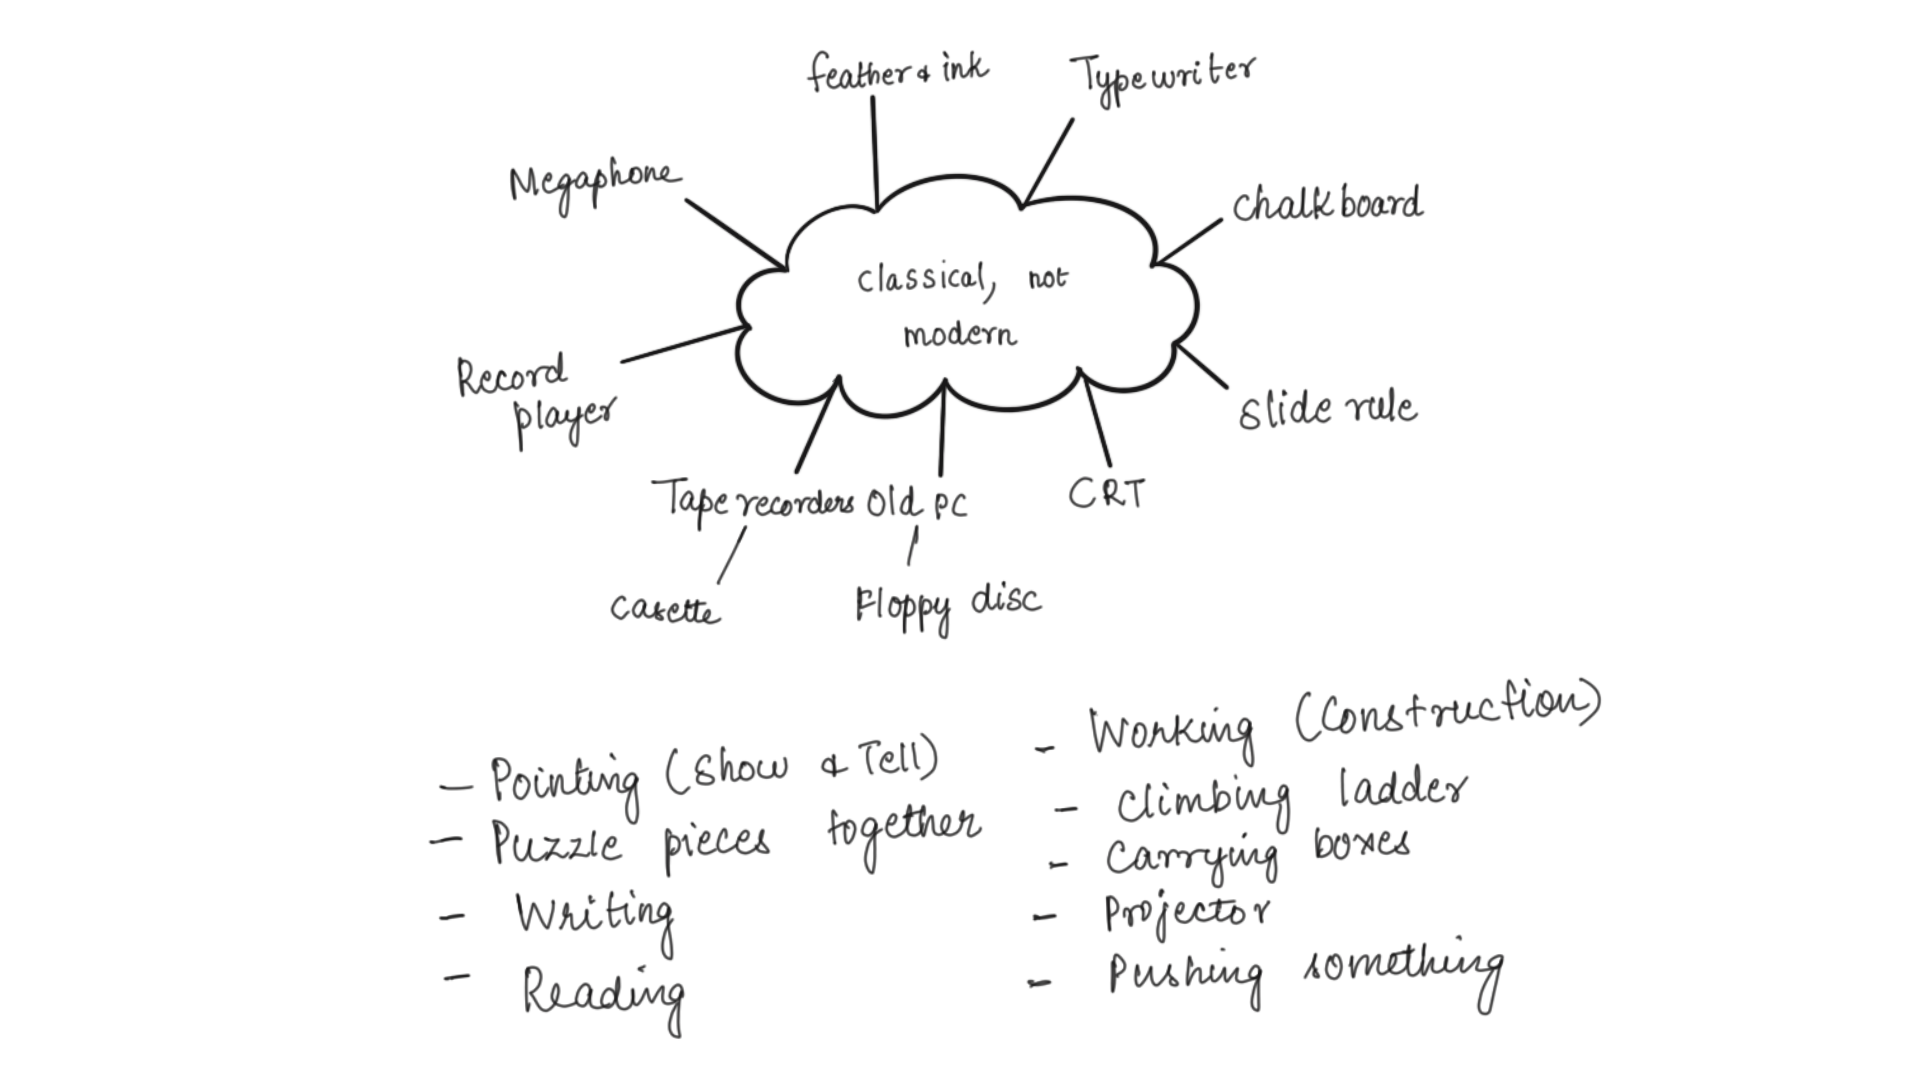 feather & ink
Typewriter
Megaphone
Chalkboard
classical, not
modern
Record
player
Slide rule
Tape recorders
Old PC
CRT
Casette
Floppy disc
- Pointing (Show & Tell)
- Puzzle pieces together
- Writing
- Reading
- Working (Construction)
- Climbing ladder
- Carrying boxes
- Projector
- Pushing something